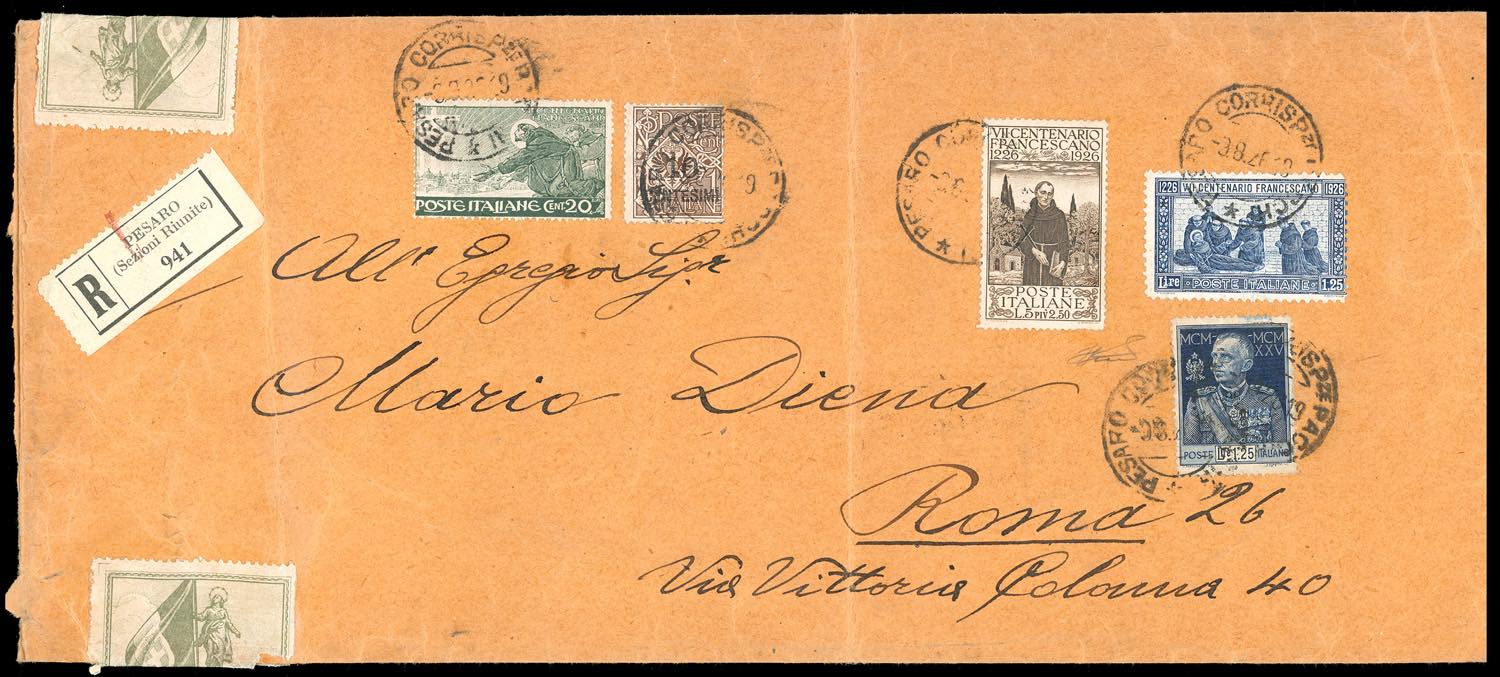 PESARO CORRISPZE
PESARO
(Sezioni Riunite)
941
R
POSTE ITALIANE CENT. 20
POSTE
10
VII CENTENARIO
FRANCESCANO
1226 1926
POSTE
ITALIANE
L.5 PIV 2.50
PESARO
PESARO CORRISPZE
-9.8.26.19
1226 VII CENTENARIO FRANCESCANO 1926
Lire POSTE ITALIANE 1.25
MCM MCM
XXV
POSTE Lre 1.25 ITALIANE
PESARO
All' Egregio Sigr
Mario Diena
Roma 26
Via Vittoria Colonna 40